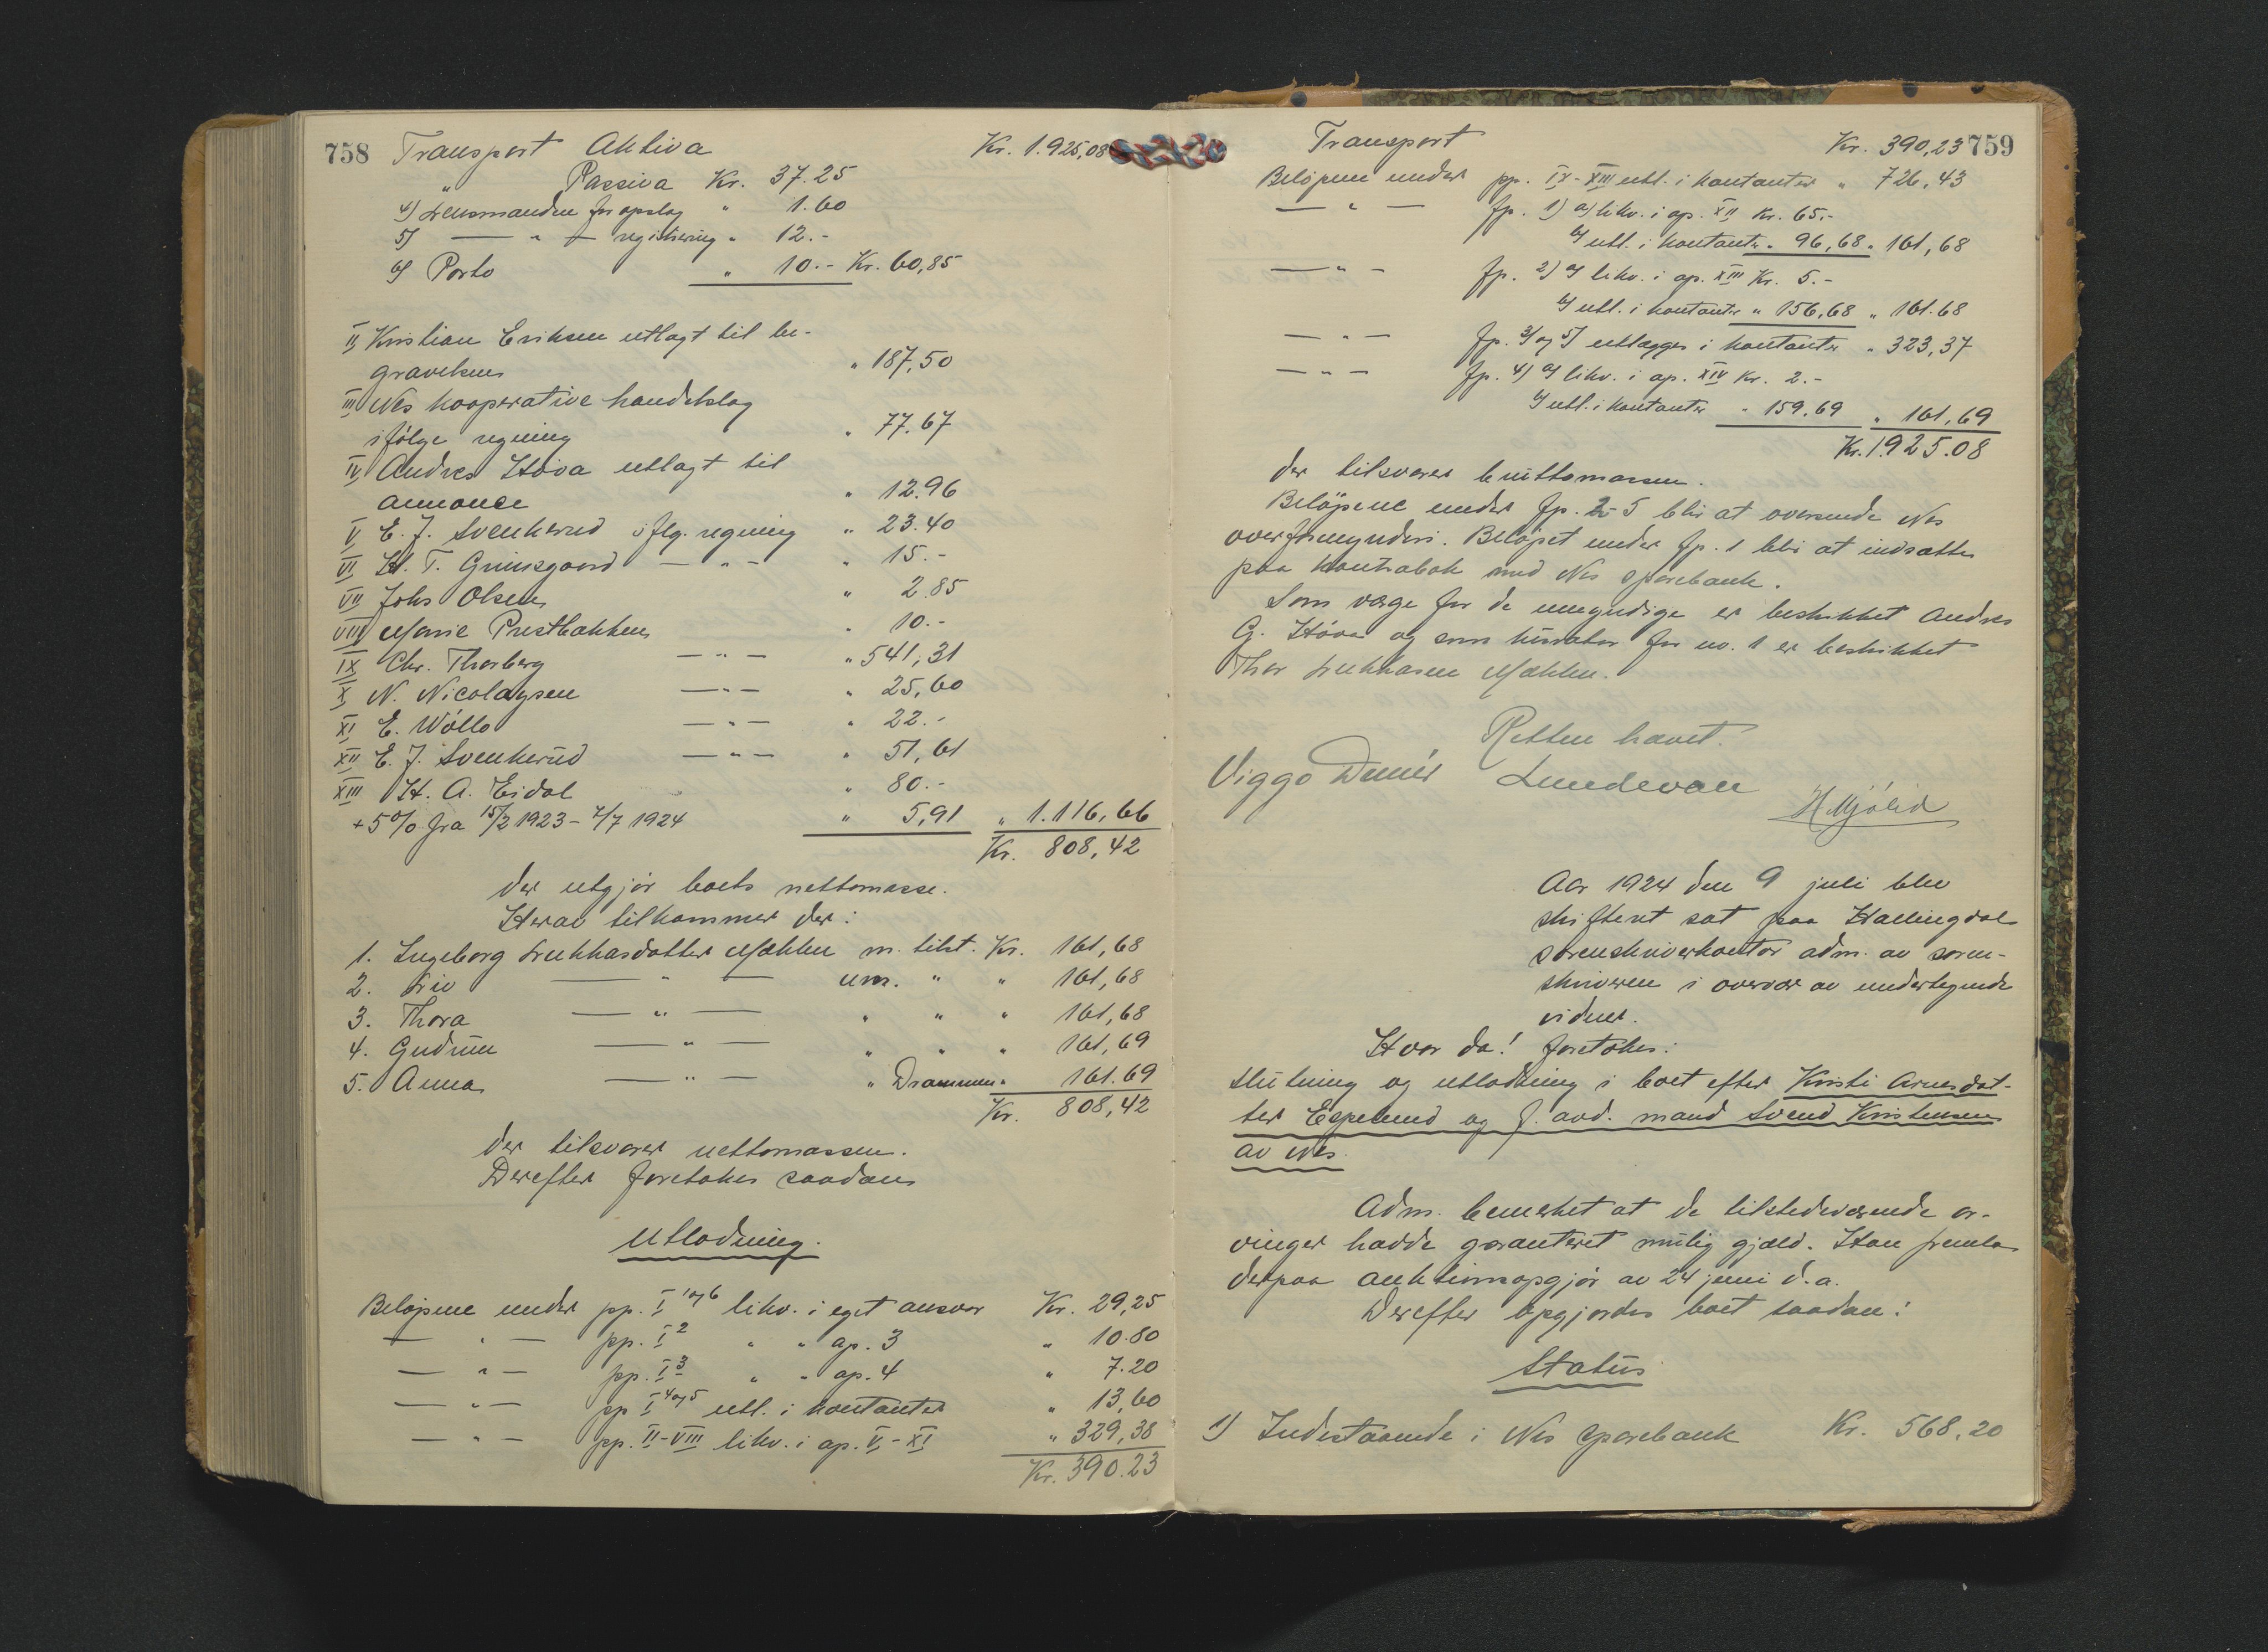 758 Transport Aktiva Kr. 1.925,08
" Passiva Kr. 37.25
4) Lensmanden for opslag " 1.60
5) — " — registrering " 12.-
6) Porto " 10.- Kr. 60,85
II Kristian Eriksen utlagt til be-
gravelsen " 187,50
III Nes kooperative handelslag
ifölge regning " 77.67
IV Andres Höva utlagt til
annonce " 12.96
V E. J. Svenkerud iflg. regning " 23.40
VI H. T. Grimsgaard — " — " 15.-
VII Johs Olsen " 2.85
VIII Marie Prestbakken " 10.-
IX Chr. Thorberg — " — " 541,31
X N. Nicolaysen — " — " 25,60
XI E. Wöllo — " — " 22.-
XII E. J. Svenkerud — " — " 51,61
XIII H. A. Eidal " 80.-
+ 5% fra 15/2 1923 - 4/7 1924 " 5,91 " 1.116,66
Kr. 808,42
der utgjör boets nettomasse.
Herav tilkommer der:
1. Ingeborg Lukkasdatter Mækken m. tilst. Kr. 161,68
2. Liv — " — um. " " 161,68
3. Thora — " — " " " 161,68
4. Gudrun — " — " " " 161,69
5. Anna — " — " Drammen " 161.69
Kr. 808,42
der tilsvarer nettomassen.
Derefter foretokes saadan
Utlodning.
Belöpene under pp. I 1 og 6 likv. i eget ansvar Kr. 29,25
— " — pp. I 2 " " ap. 3 " 10.80
— " — pp. I 3 " " ap. 4 " 7.20
— " — pp I 4 og 5 utl. i kontanter " 13,60
— " — pp. II-VIII likv. i ap. V-XI " 329,38
Kr. 390.23
Transport Kr. 390,23 759
Belöpene under pp. IX-XIII utl. i kontanter " 726,43
— " — fp. 1) a) likv. i ap. XII Kr. 65.-
b) utl. i kontanter " 96,68 " 161,68
— " — fp. 2) a) likv. i ap. XIII Kr. 5.-
b) utl. i kontanter " 156,68 " 161.68
— " — fp. 3) og 5) utlægges i kontanter " 323,37
— " — fp. 4) a) likv. i ap. XIV Kr. 2.-
b) utl. i kontanter " 159.69 " 161,69
Kr. 1925.08
der tilsvarer bruttomassen.
Belöpene under fp. 2-5 blir at oversende Nes
overformynderi. Belöpet under fp. 1 blir at indsætte
paa kontrabok med Nes sparebank.
Som værge for de umyndige er beskikket Andres
G. Höva og som kurator for nr. 1 er beskikket
Thor Lukkasen Mækken.
Retten hævet.
Viggo Lundevall
H Mjölid
Aar 1924 den 9 juli blev
skifteret sat paa Hallingdal
sorenskriverkontor adm. av soren-
skriveren i overvær av undertegnede
vidner.
Hvor da! foretokes:
slutning og utlodning i boet efter Kristi Arnesdat-
ter Espelund og f. avd. mand Svend Kristensen
av Nes.
Adm. bemerket at de tilstedeværende ar-
vinger hadde garanteret mulig gjæld. Han fremla
derpaa auktionsopgjör av 24 juni d.a.
Derefter opgjordes boet saadan:
Status
1) Indestaaende i Nes sparebank Kr. 568,20